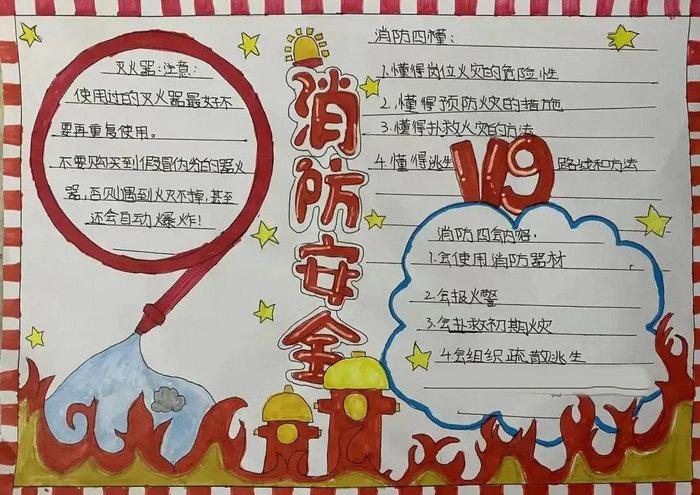 灭火器注意:
使用过的灭火器最好不
要再重复使用。
不要购买到假冒伪劣的器火
器,否则遇到火灭不掉,甚至
还会自动爆炸!
消防安全
消防四懂:
1.懂得岗位火灾的危险性
2.懂得预防火灾的措施
3.懂得扑救火灾的方法
4.懂得逃生 路线和方法
119
消防四会内容:
1.会使用消防器材
2.会报火警
3.会扑救初期火灾
4.会组织疏散逃生